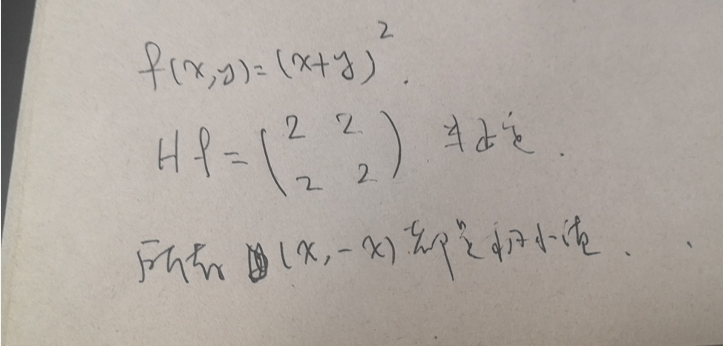 f(x,y)=(x+y)^2.
Hf=(2 2
2 2) 半正定.
所有 (x,-x) 都是极小值.